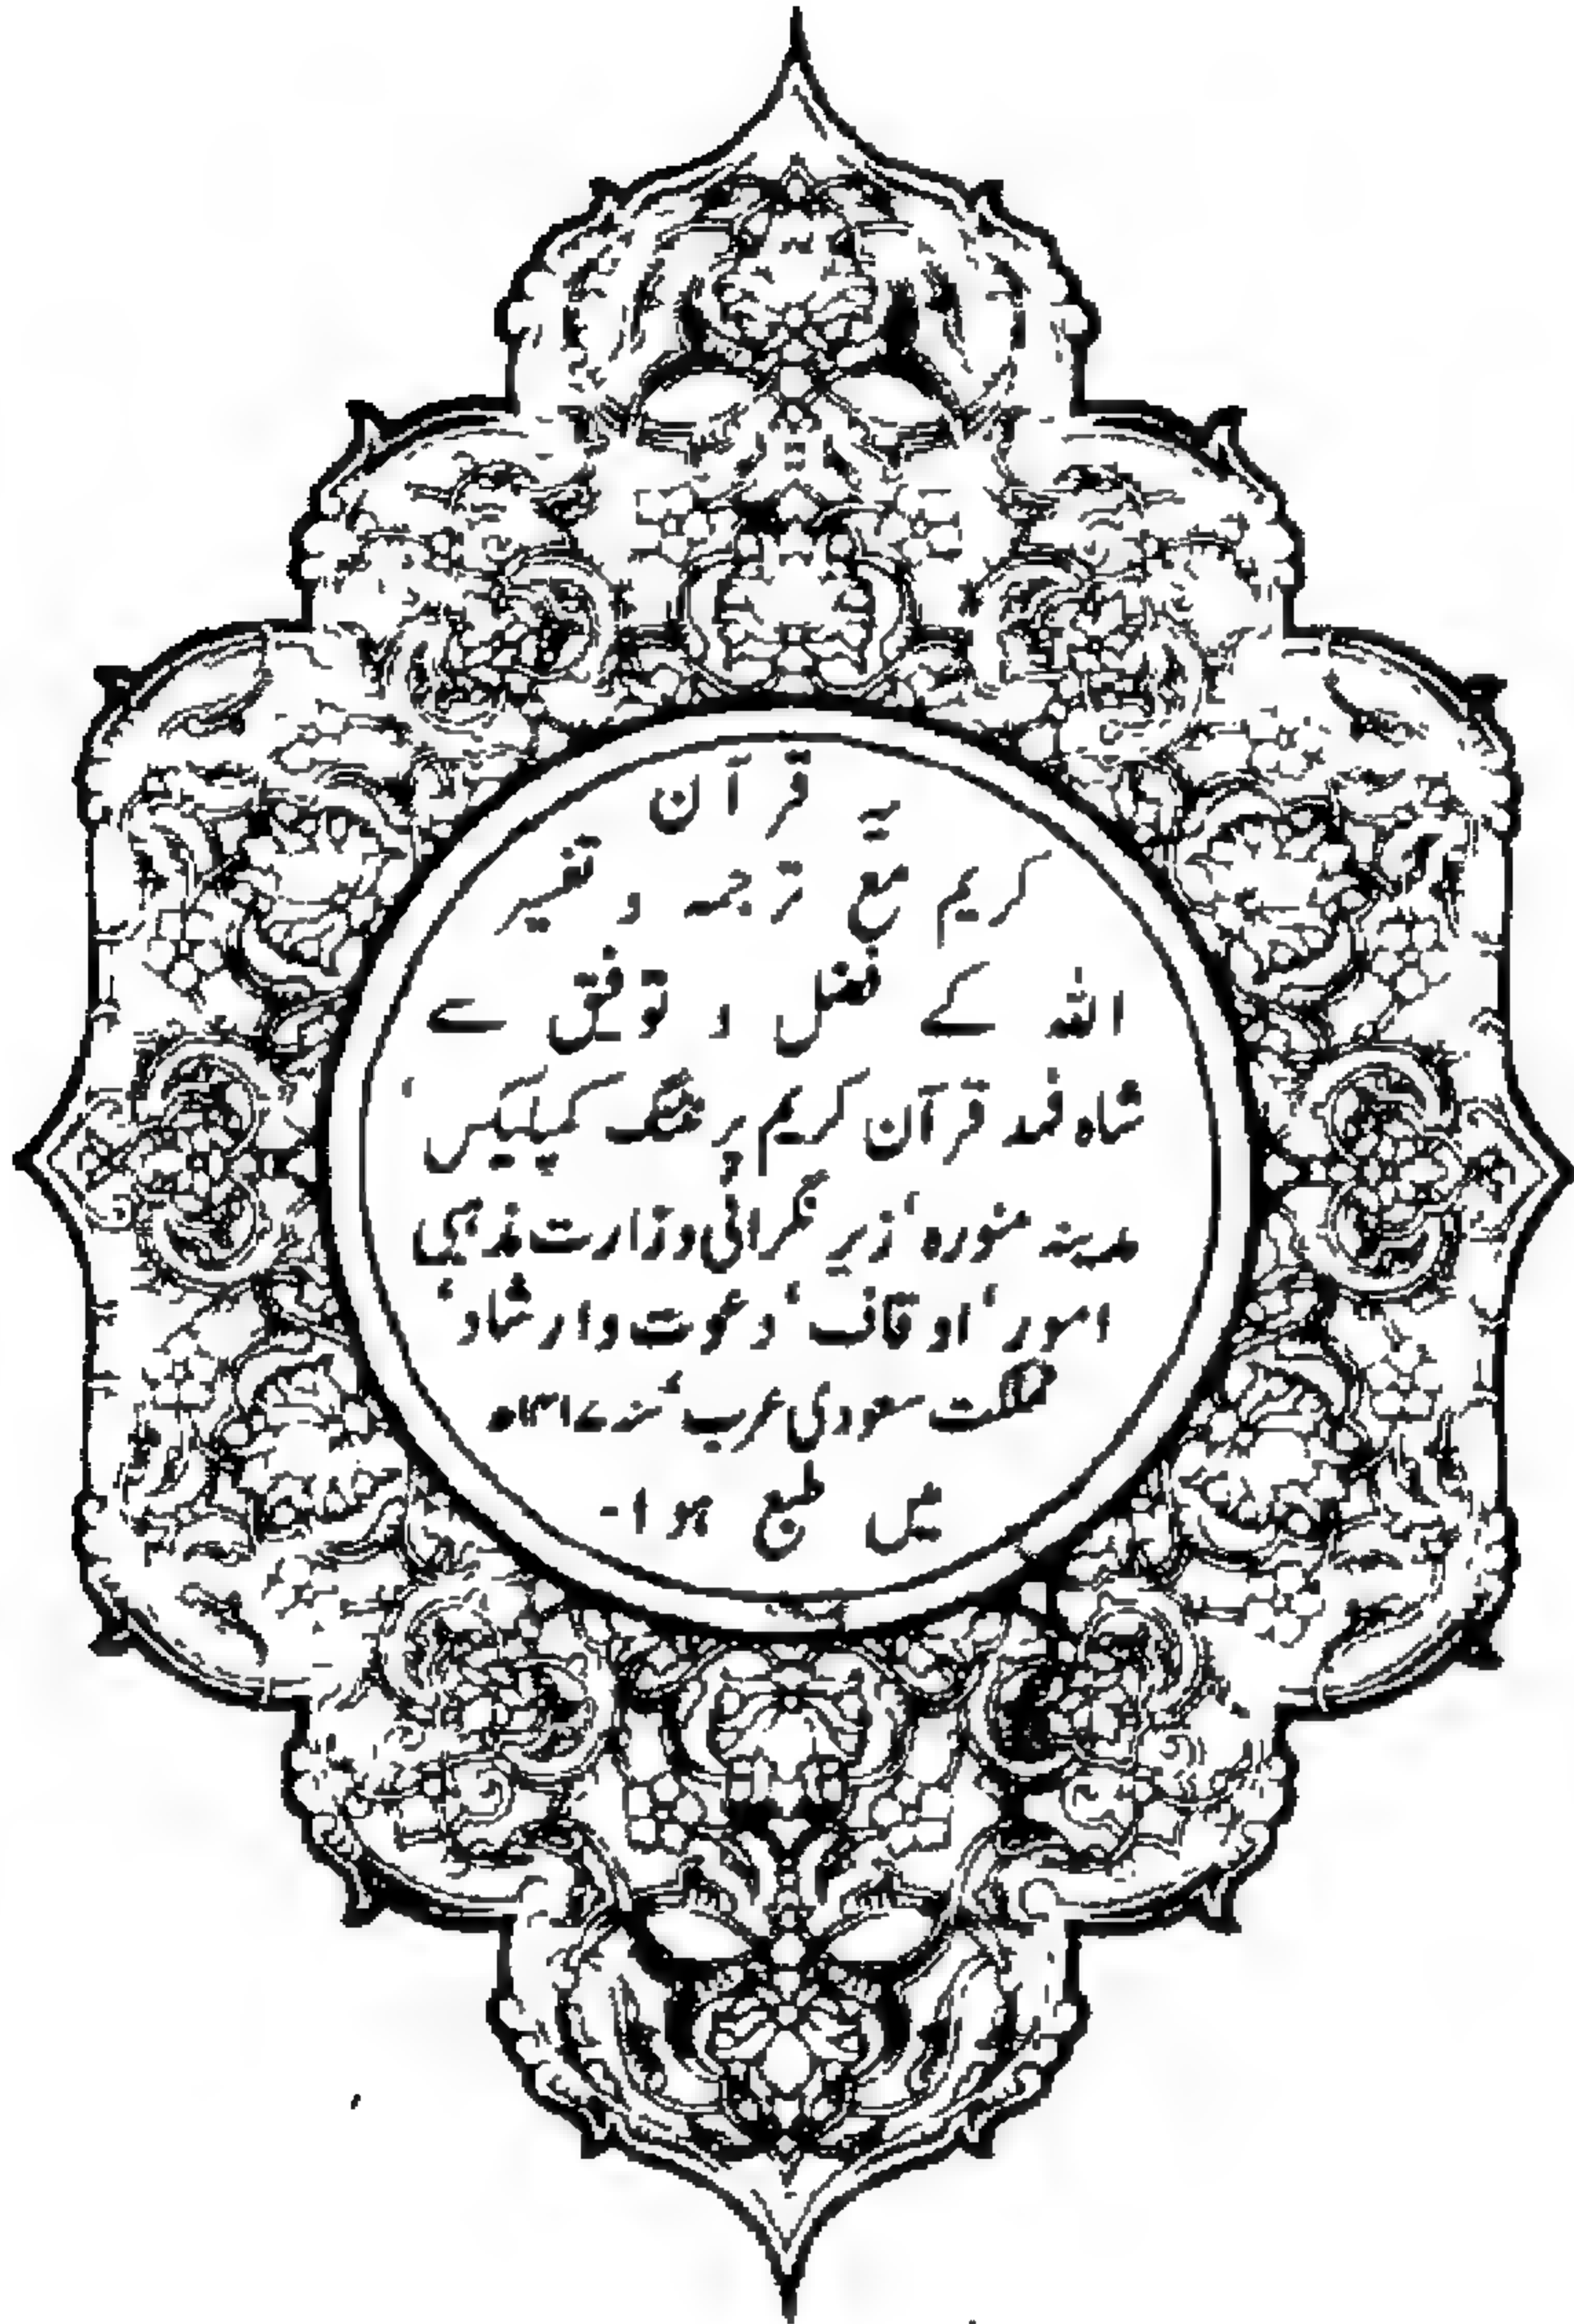 یہ قرآن
کریم مع ترجمہ و تفسیر
اللہ کے فضل و توفیق سے
شاہ فہد قرآن کریم پرنٹنگ کمپلیکس ‘
مدینہ منورہ ‘ زیر نگرانی وزارت مذہبی
امور ‘ اوقاف ‘ دعوت وارشاد ‘
مملکت سعودی عرب ‘ سنہ ۱۴۱۷ھ
میں طبع ہوا ۔